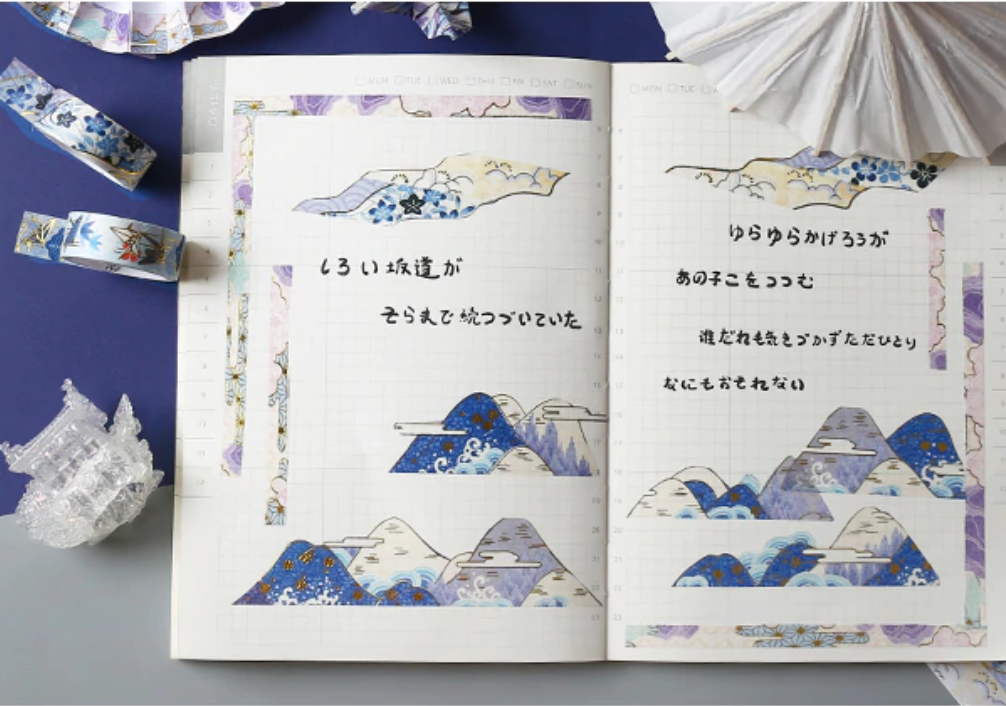 DAILY
MON TUE WED THU FRI SAT SUN
しろい坂道が
そらまで続つづいていた
MON TUE
ゆらゆらかげろうが
あの子こをつつむ
誰だれも気きづかずただひとり
なにもおそれない